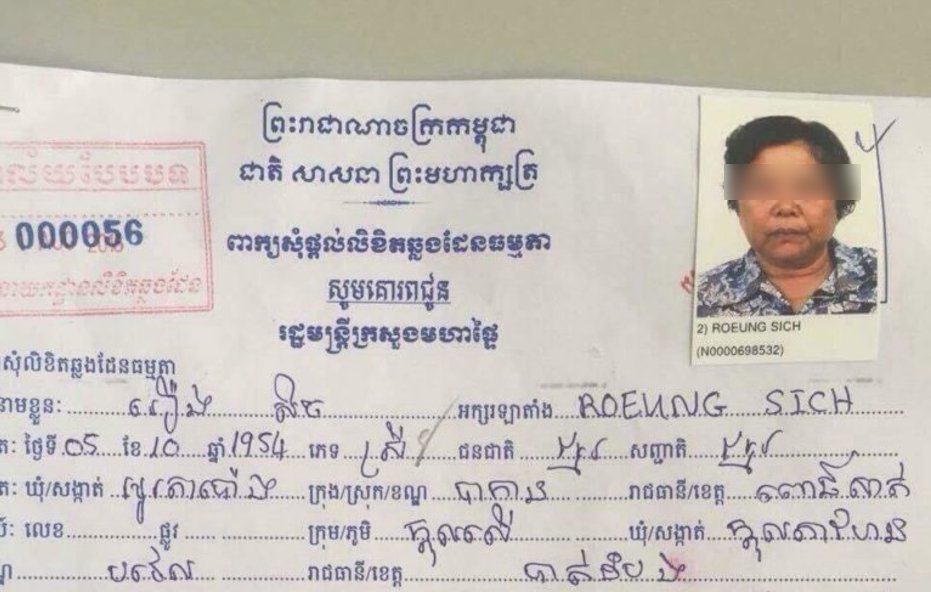 ព្រះរាជាណាចក្រកម្ពុជា
ជាតិ សាសនា ព្រះមហាក្សត្រ
000056
ពាក្យសុំផ្តល់លិខិតឆ្លងដែនធម្មតា
សូមគោរពជូន
រដ្ឋមន្ត្រីក្រសួងមហាផ្ទៃ
2) ROEUNG SICH
(N0000698532)
សុំលិខិតឆ្លងដែនធម្មតា
នាមខ្លួន: រឿង ស៊ិច អក្សរឡាតាំង ROEUNG SICH
ថ្ងៃទី 05 ខែ 10 ឆ្នាំ 1954 ភេទ ស្រី ជនជាតិ ខ្មែរ សញ្ជាតិ ខ្មែរ
ឃុំ/សង្កាត់ អូរតាប៉ោង ក្រុង/ស្រុក/ខណ្ឌ បាកាន រាជធានី/ខេត្ត ពោធិ៍សាត់
លេខ ផ្លូវ ក្រុម/ភូមិ ឃុំ/សង្កាត់
បវេល រាជធានី/ខេត្ត បាត់ដំបង